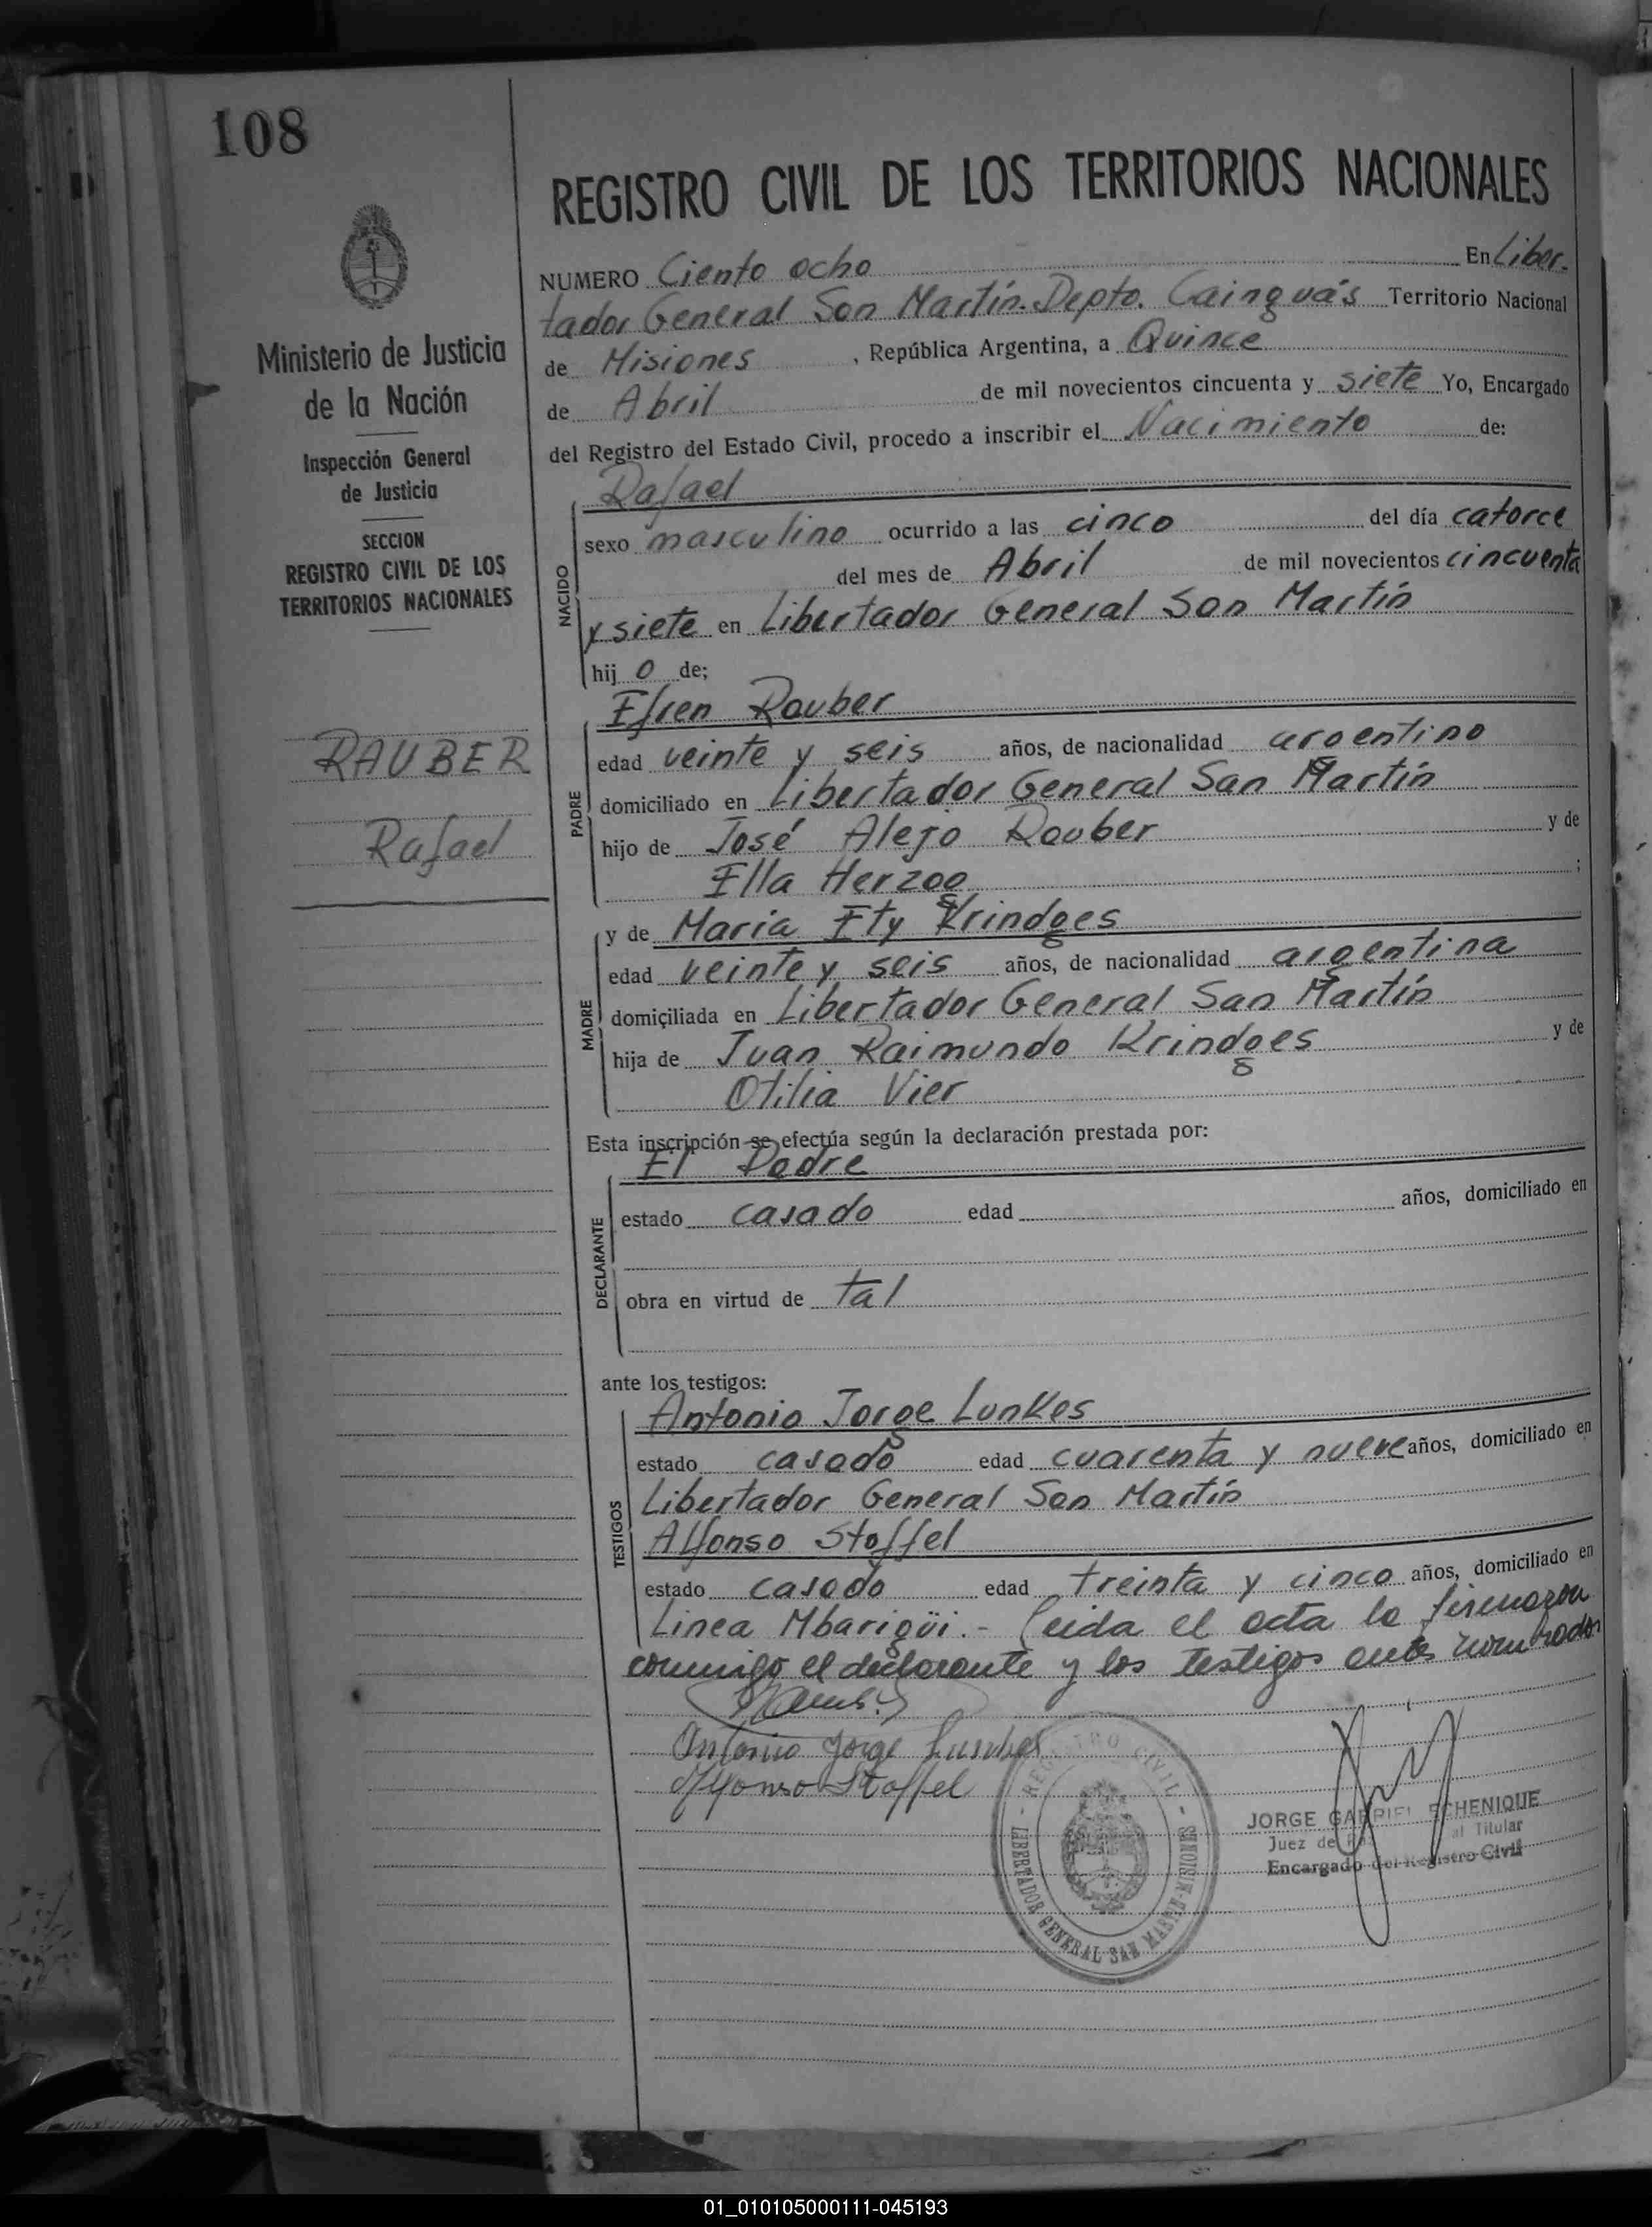 108
Ministerio de Justicia
de la Nación
Inspección General
de Justicia
SECCION
REGISTRO CIVIL DE LOS
TERRITORIOS NACIONALES
RAUBER
Rafael
REGISTRO CIVIL DE LOS TERRITORIOS NACIONALES
NUMERO Ciento ocho En Liber-
tador General San Martín. Depto. Cainguás Territorio Nacional
de Misiones, República Argentina, a Quince
de Abril de mil novecientos cincuenta y siete Yo, Encargado
del Registro del Estado Civil, procedo a inscribir el Nacimiento de:
Rafael
NACIDO
sexo masculino ocurrido a las cinco del día catorce
del mes de Abril de mil novecientos cincuenta
y siete en Libertador General San Martín
hij o de;
Efren Rauber
PADRE
edad veinte y seis años, de nacionalidad argentino
domiciliado en Libertador General San Martín
hijo de José Alejo Rauber y de
Ella Herzog ;
y de María Ety Krindges
MADRE
edad veinte y seis años, de nacionalidad argentina
domiciliada en Libertador General San Martín
hija de Juan Raimundo Krindges y de
Otilia Vier
Esta inscripción se efectúa según la declaración prestada por:
El Padre
DECLARANTE
estado casado edad años, domiciliado en
obra en virtud de tal
ante los testigos:
Antonio Jorge Lunkes
TESTIGOS
estado casado edad cuarenta y nueve años, domiciliado en
Libertador General San Martín
Alfonso Stoffel
estado casado edad treinta y cinco años, domiciliado en
Linea Mbarigüi.- Leida el acta la firmaron
conmigo el declarante y los testigos antes nombrados
Antonio Jorge Lunkes
Alfonso Stoffel
REGISTRO CIVIL
LIBERTADOR GENERAL SAN MARTIN-MISIONES
JORGE GABRIEL ECHENIQUE
Juez de Titular
Encargado del Registro Civil
01_010105000111-045193